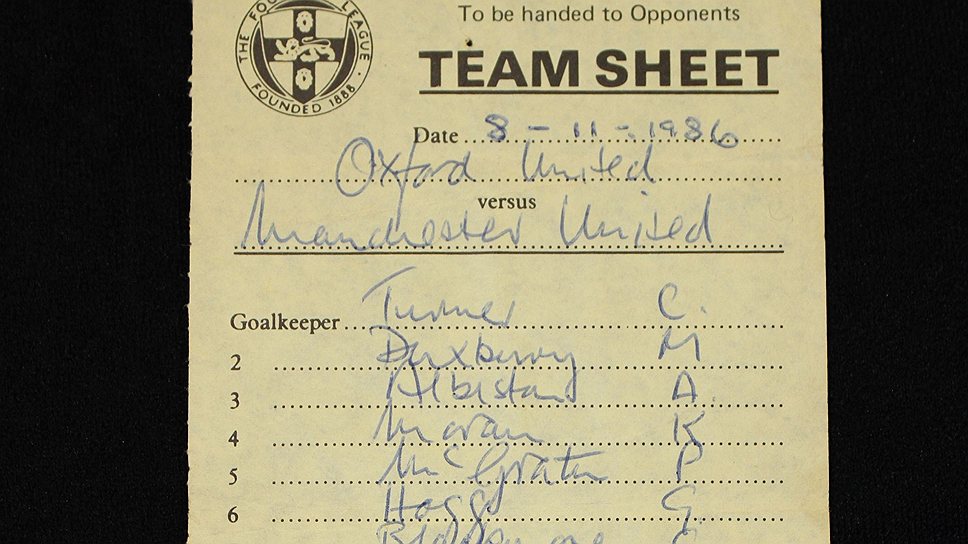 THE FOOTBALL LEAGUE
FOUNDED 1888
To be handed to Opponents
TEAM SHEET
Date 8 - 11 - 1986
Oxford United
versus
Manchester United
Goalkeeper Turner C.
2 Duxbury M
3 Albiston A.
4 Moran K
5 McGrath P
6 Hogg G